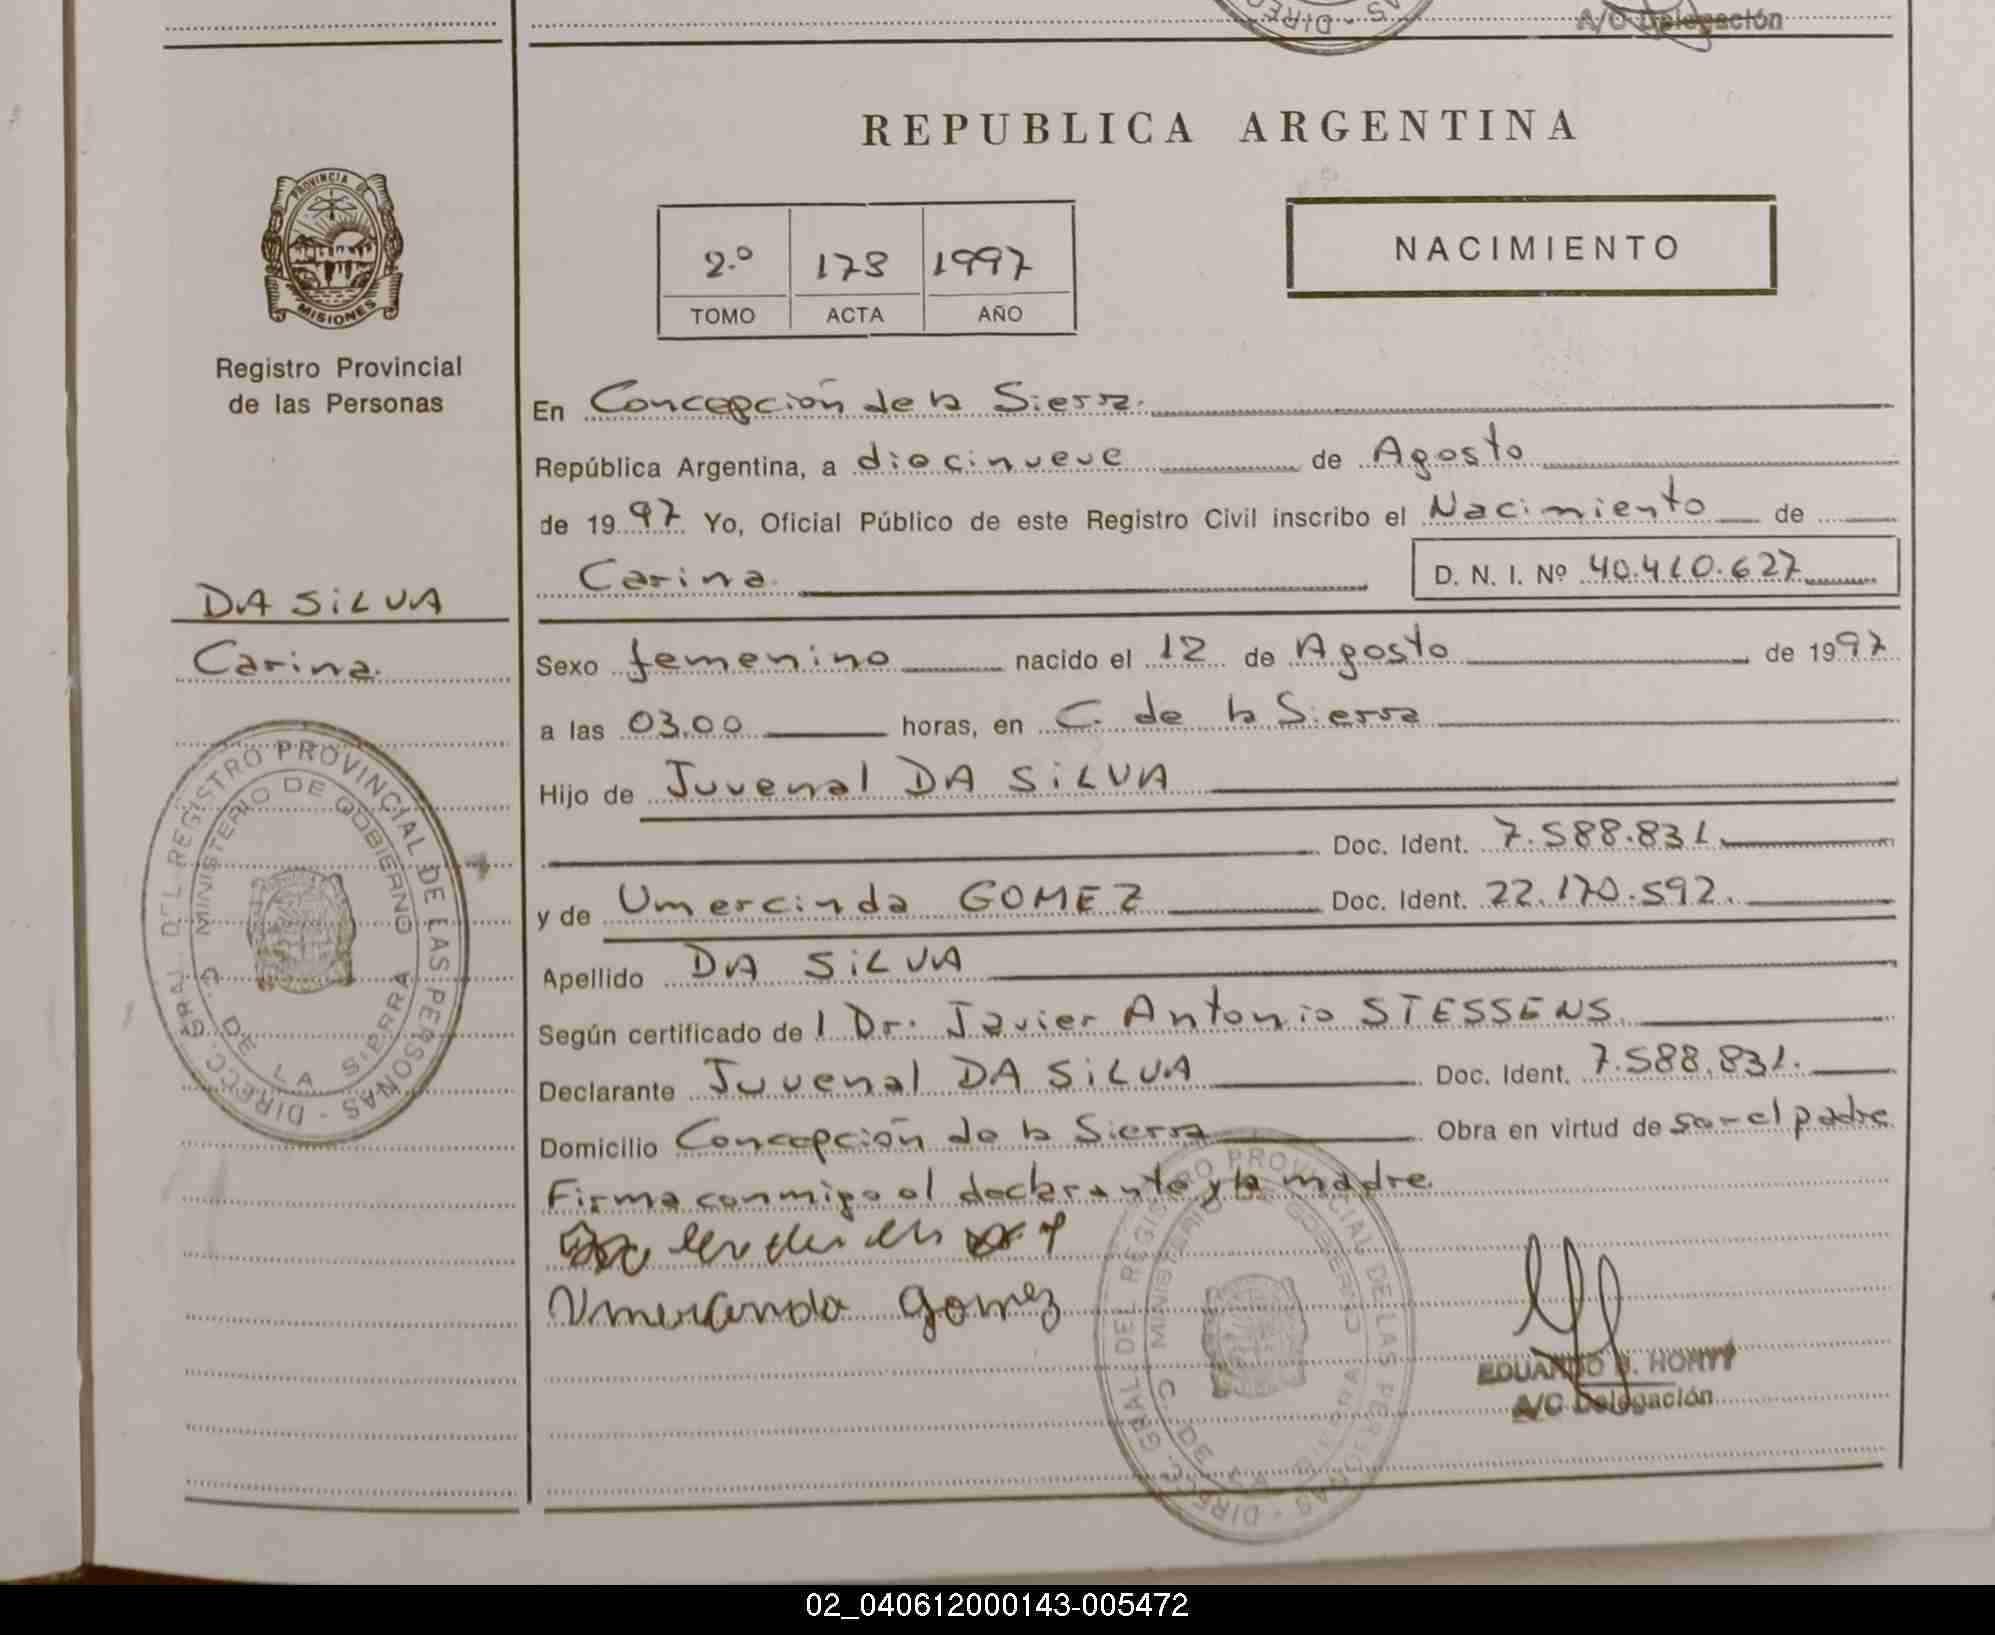 A/C Delegación
REPUBLICA ARGENTINA
PROVINCIA DE
MISIONES
Registro Provincial
de las Personas
2.º 173 1997
TOMO ACTA AÑO
NACIMIENTO
En Concepción de la Sierra.
República Argentina, a diecinueve de Agosto
de 1997 Yo, Oficial Público de este Registro Civil inscribo el Nacimiento de
Carina.
D. N. I. Nº 40.410.627
DA SiLVA
Carina.
Sexo femenino nacido el 12 de Agosto de 1997
a las 03,00 horas, en C. de la Sierra
Hijo de Juvenal DA SiLVA
Doc. Ident. 7.588.831.
y de Umercinda GOMEZ Doc. Ident. 22.170.592.
Apellido DA SiLVA
Según certificado de l Dr. Javier Antonio STESSENS.
Declarante Juvenal DA SiLVA Doc. Ident. 7.588.831.
Domicilio Concepción de la Sierra Obra en virtud de ser el padre
Firma conmigo el declarante y la madre.
Umercinda Gomez
DIRECC. GRAL. DEL REGISTRO PROVINCIAL DE LAS PERSONAS
MINISTERIO DE GOBIERNO
C. DE LA SIERRA
DIRECC. GRAL DEL REGISTRO PROVINCIAL DE LAS PERSONAS
MINISTERIO DE GOBIERNO
C. DE LA SIERRA
EDUARDO
A/C Delegación
02_040612000143-005472